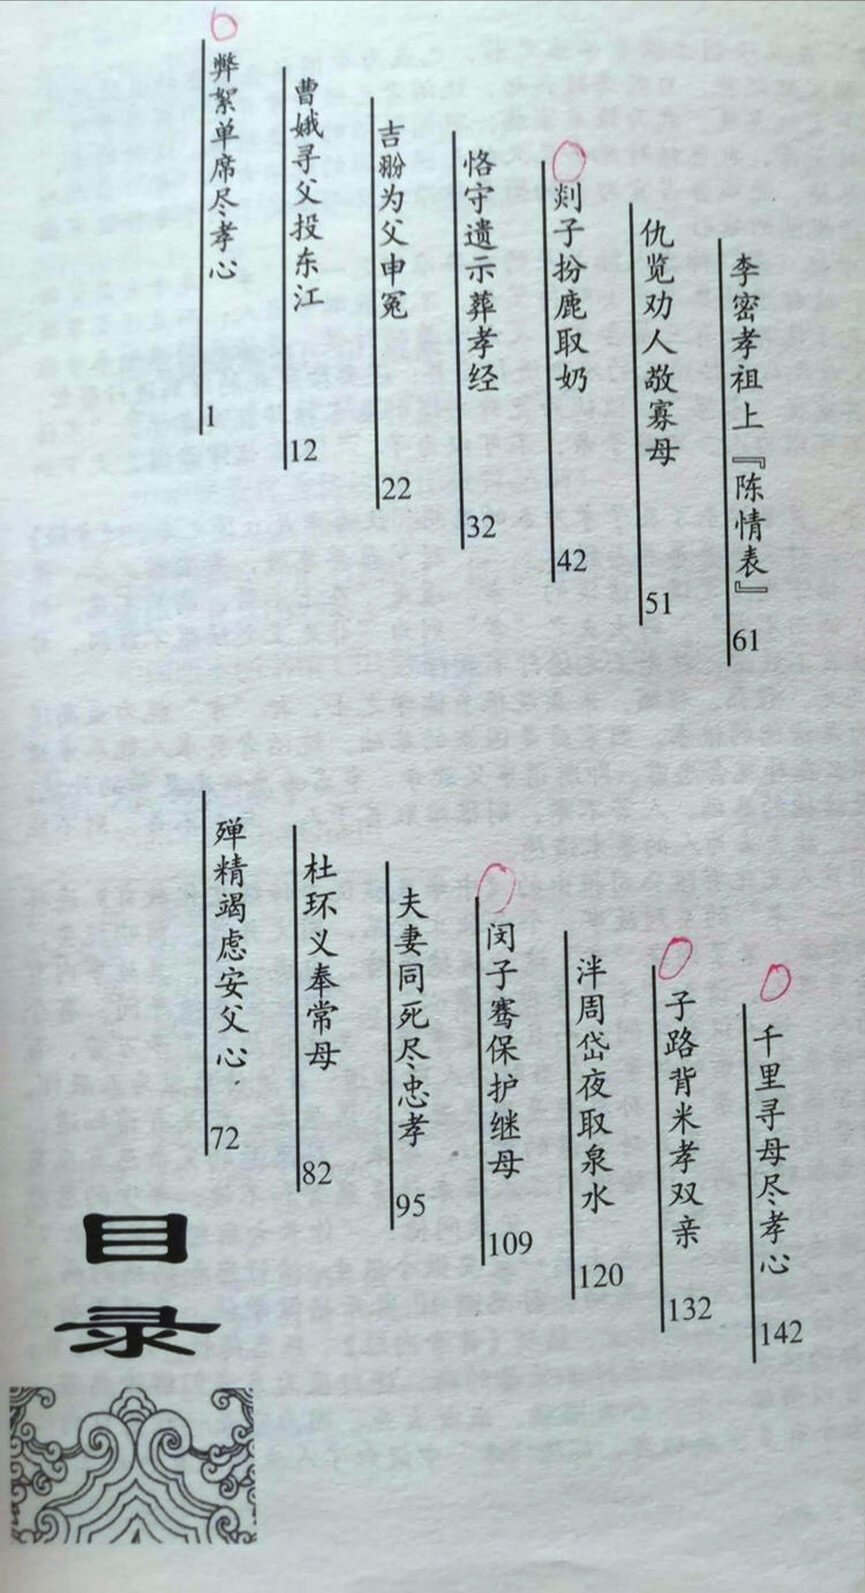 目录
弊絮单席尽孝心 1
曹娥寻父投东江 12
吉翂为父申冤 22
恪守遗示葬孝经 32
剡子扮鹿取奶 42
仇览劝人敬寡母 51
李密孝祖上『陈情表』 61
殚精竭虑安父心 72
杜环义奉常母 82
夫妻同死尽忠孝 95
闵子骞保护继母 109
泮周岱夜取泉水 120
子路背米孝双亲 132
千里寻母尽孝心 142